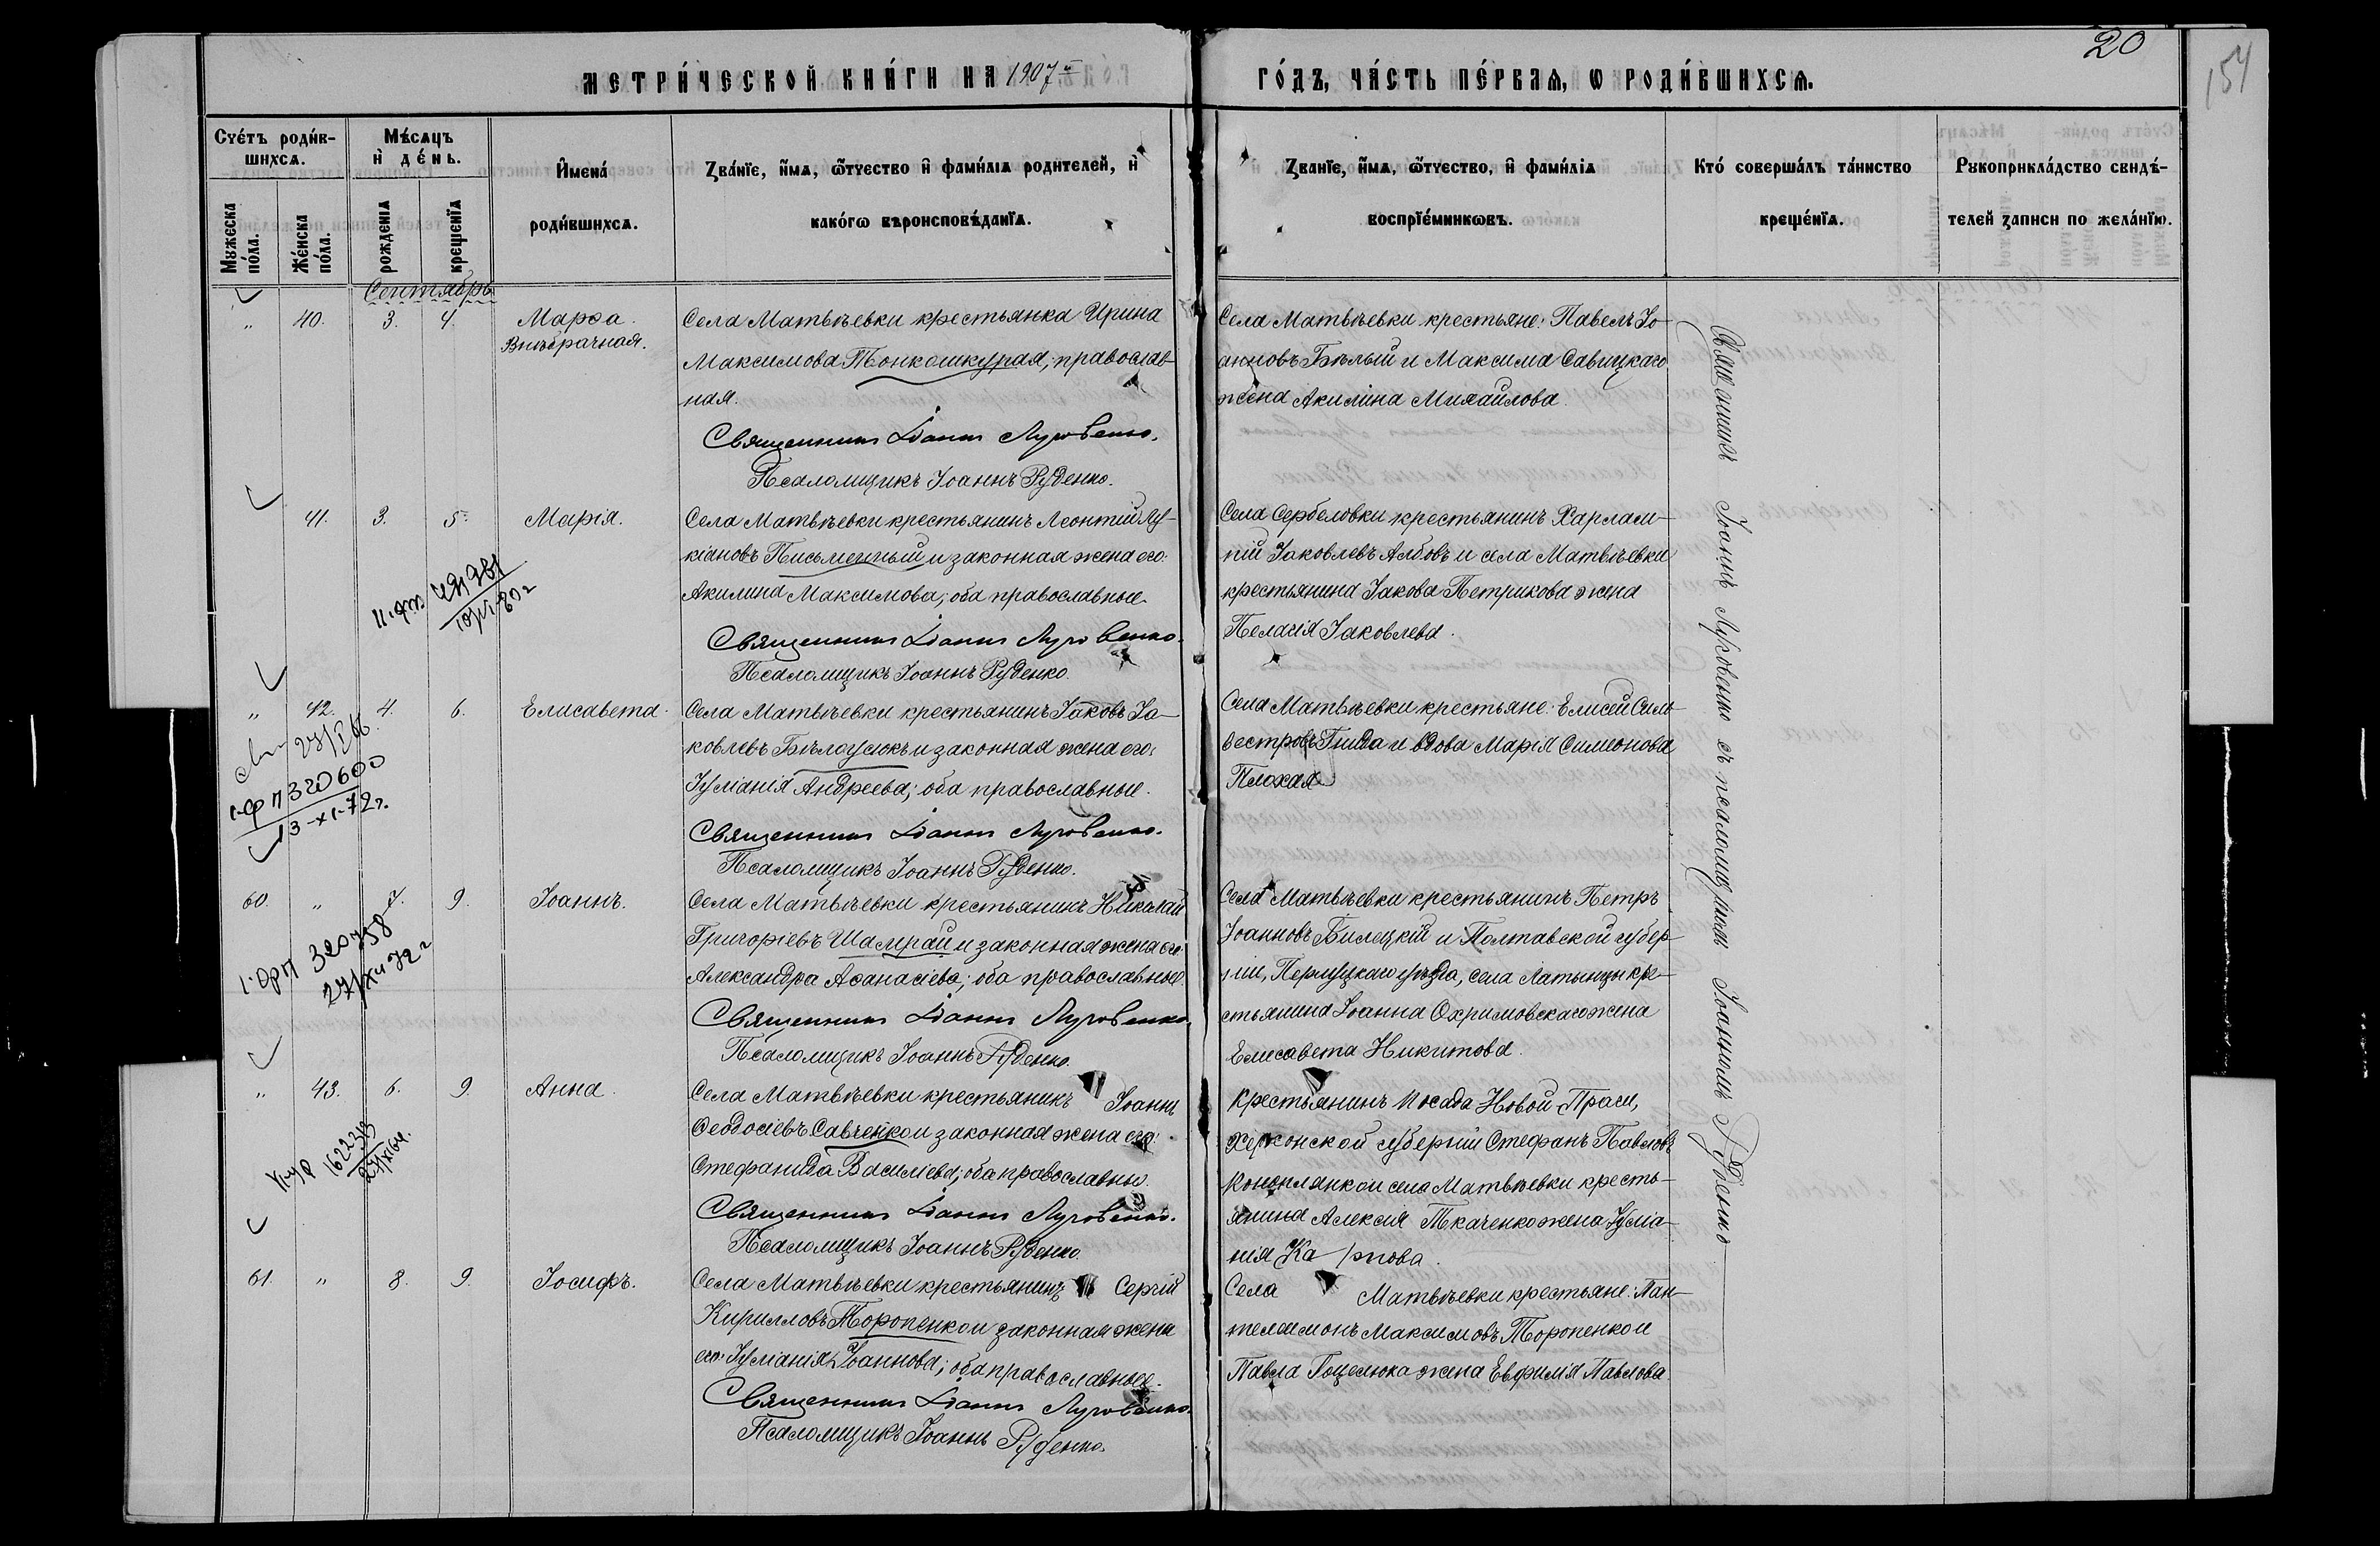 20
154
МЕТРИ́ЧЕСКОЙ КНИ́ГИ НА 1907 й ГО́ДЪ, ЧА́СТЬ ПЕ́РВАѦ, Ѡ РОДИ́ВШИХСѦ.
Счéтъ роди́в-
шихсѧ.
Мꙋжеска по́ла.
Же́нска по́ла.
Мѣ́сѧцъ
и҆ де́нь.
рожденїѧ
крещенїѧ
И҆мена́
роди́вшихсѧ.
Ꙁва́нїе, и҆́мѧ, ѻ҆́тчество и҆ фами́лїѧ родителей, и҆
како́гѡ вѣроисповѣ́данїѧ.
Ꙁва́нїе, и҆́мѧ, ѻ҆́тчество, и҆ фами́лїѧ
воспрїе́мникѡвъ.
Кто́ соверша́лъ та́инство
креще́нїѧ.
Рꙋкоприкла́дство свидѣ́-
телей ꙁаписи по жела́нїю.
Сентябрь
" 40. 3. 4. Марѳа.
Внѣбрачная.
Села Матвѣевки крестьянка Ирина
Максимова Тонкошкурая, православ-
ная.
Священникъ Іоаннъ Луговенко.
Псаломщикъ Іоаннъ Руденко.
Села Матвѣевки крестьяне: Павелъ Іо-
анновъ Бѣлый и Максима Савицкаго
жена Акилина Михайлова.
Священникъ Іоаннъ Луговенко съ псаломщикомъ Іоанномъ Руденко
41. 3. 5. Марія.
Села Матвѣевки крестьянинъ Леонтій Лу-
кіановъ Письменный и законная жена его:
Акилина Максимова; оба православные.
Священникъ Іоаннъ Луговенко.
Псаломщикъ Іоаннъ Руденко.
Села Сербеловки крестьянинъ Харлам-
пій Іаковлевъ Албовъ и села Матвѣевки
крестьянина Іакова Петрикова жена
Пелагія Іаковлева.
" 42. 4. 6. Елисавета.
320600
13-XI-72г.
Села Матвѣевки крестьянинъ Іаковъ Іа-
ковлевъ Бѣлоусюкъ и законная жена его:
Іуліанія Андреева; оба православные.
Священникъ Іоаннъ Луговенко.
Псаломщикъ Іоаннъ Руденко.
Села Матвѣевки крестьяне: Елисей Силь-
вестровъ Гнида и вдова Марія Симеонова
Плохая
60. " 7. 9. Іоаннъ.
320758
27/XII 72г
Села Матвѣевки крестьянинъ Николай
Григоріевъ Шамрай и законная жена его:
Александра Аѳанасіева; оба православные.
Священникъ Іоаннъ Луговенко.
Псаломщикъ Іоаннъ Руденко.
Села Матвѣевки крестьянинъ Петръ
Іоанновъ Билецкій и Полтавской губер-
ніи, уѣзда, села Латынцы кре-
стьянина Іоанна Охримовскаго жена
Елисавета Никитова.
" 43. 6. 9. Анна.
Села Матвѣевки крестьянинъ Іоаннъ
Ѳеодосіевъ Савченко и законная жена его:
Стефанида Василіева; оба православны.
Священникъ Іоаннъ Луговенко.
Псаломщикъ Іоаннъ Руденко.
Крестьянинъ посада Новой Праги,
Херсонской губерніи Стефанъ Павловъ
Коноплянко и села Матвѣевки кресть-
янина Алексія Ткаченко жена Іуліа-
нія Карпова.
61. " 8. 9. Іосифъ.
Села Матвѣевки крестьянинъ Сергій
Кирилловъ Торопенко и законная жена
его: Іуліанія Іоаннова; оба православные.
Священникъ Іоаннъ Луговенко.
Псаломщикъ Іоаннъ Руденко.
Села Матвѣевки крестьяне: Пан-
телеимонъ Максимовъ Торопенко и
Павла Гоцелюка жена Евфимія Павлова